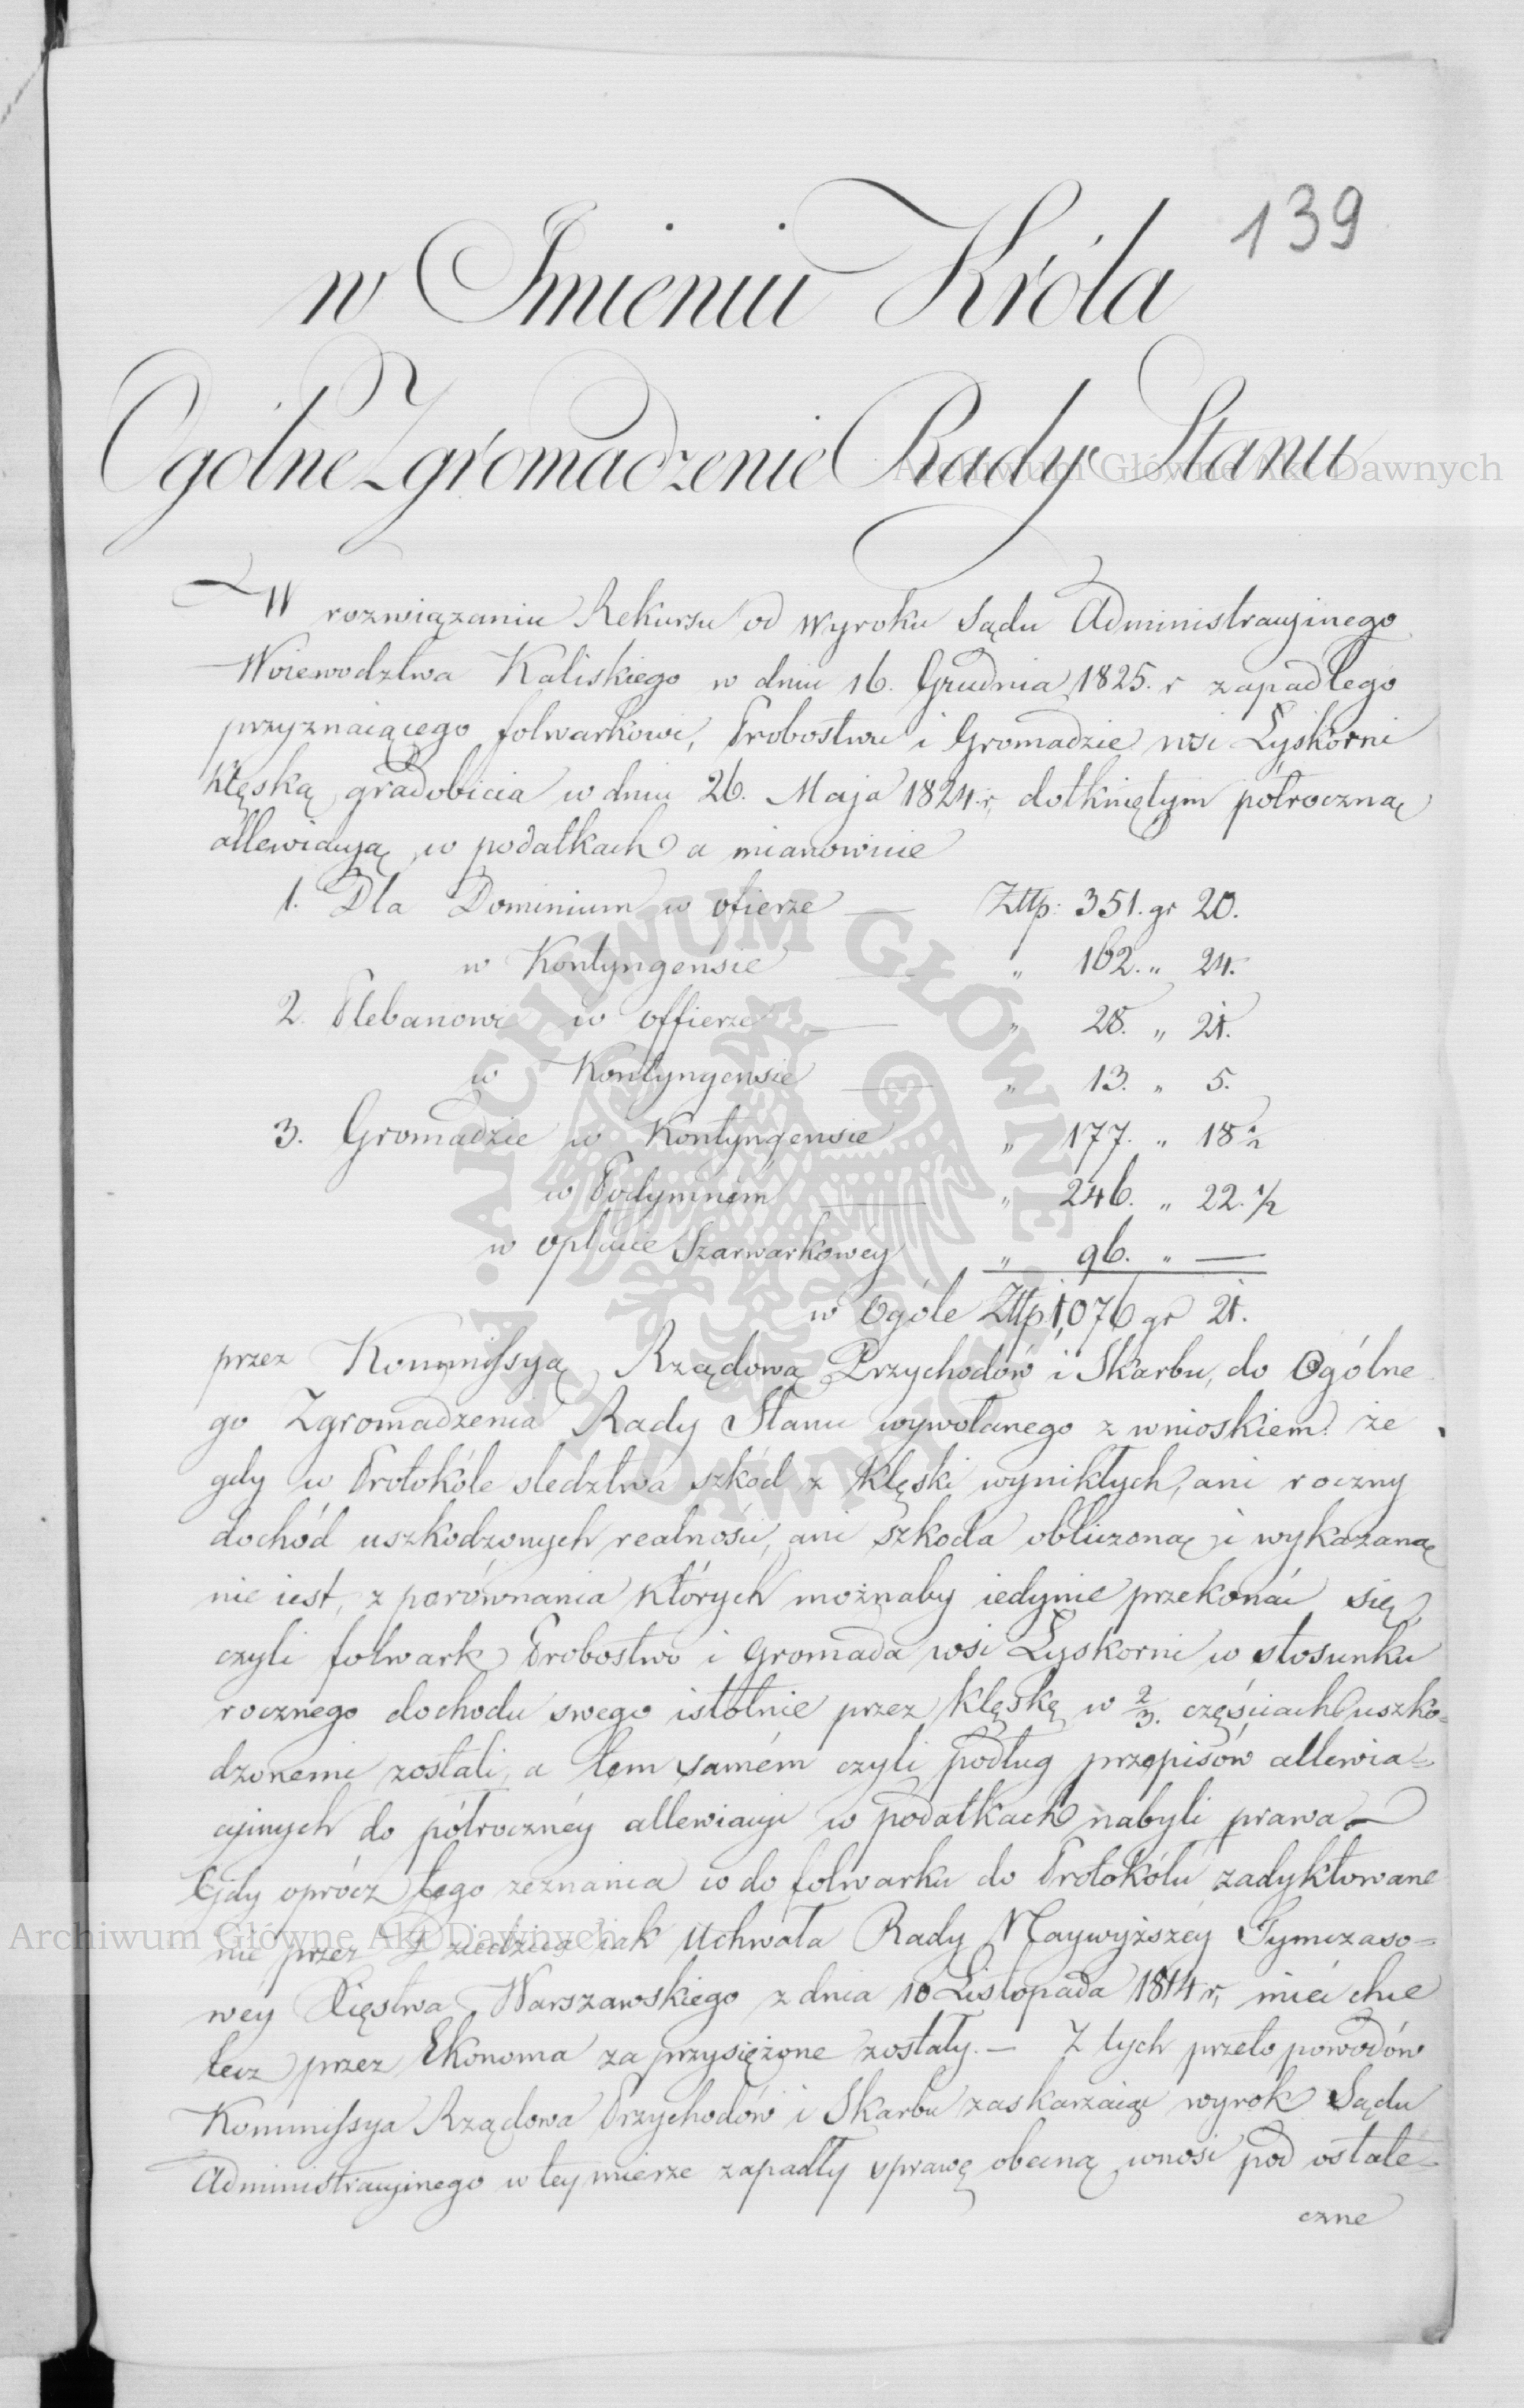 139
w Imieniu Króla
Ogolne Zgromadzenie Rady Stanu
W rozwiązaniu Rekursu od wyroku Sądu Administracyinego
Woiewodztwa Kaliskiego w dniu 16. Grudnia 1825. r zapadłego
przyznaiącego folwarkowi, Probostwu i Gromadzie wsi Łyskorni
klęską gradobicia w dniu 26. Maja 1824 r, dotkniętym półroczną
allewiacyą w podatkach a mianowicie
1. Dla Dominium w ofierze — Złtp: 351. gr 20.
w Kontyngensie — „ 162. „ 24.
2. Plebanowi w offierze — „ 28. „ 21.
w Kontyngensie — „ 13. „ 5.
3. Gromadzie w Kontyngensie „ 177. „ 18 ½
w Podymném — „ 246. „ 22. ½
w opłacie Szarwarkowey „ 96. „ —
w Ogóle Złtp 1,076 gr 21.
przez Kommissyą Rządową Przychodów i Skarbu, do Ogólne
go Zgromadzenia Rady Stanu wywołanego z wnioskiem że
gdy w Protokóle sledztwa szkód z klęski wynikłych, ani roczny
dochód uszkodzonych realności, ani szkoda obliczoną i wykazaną
nie iest, z porównania których możnaby iedynie przekonać się,
czyli folwark Probostwo i Gromada wsi Łyskorni w stosunku
rocznego dochodu swego istotnie przez klęskę w 2/3. częściach uszko=
dzonemi zostali, a tem samém czyli podług przepisów allewia=
cyinych do półrocznéy allewiacyi w podatkach nabyli prawa —
Gdy oprócz tego zeznania co do folwarku do Protokólu zadyktowane
nie przez Dziedzica iak Uchwała Rady Naywyższéy Tymczaso=
wey Xięstwa Warszawskiego z dnia 10 Listopada 1814 r, mieć chce
lecz przez Ekonoma zaprzysiężone zostały. — Z tych przeto powodów
Kommissya Rządowa Przychodów i Skarbu zaskarzaiąc wyrok Sądu
Administracyinego w tey mierze zapadły sprawę obecną wnosi pod ostate=
czne
Archiwum Główne Akt Dawnych
Archiwum Główne Akt Dawnych
ARCHIWUM GŁÓWNE AKT DAWNYCH